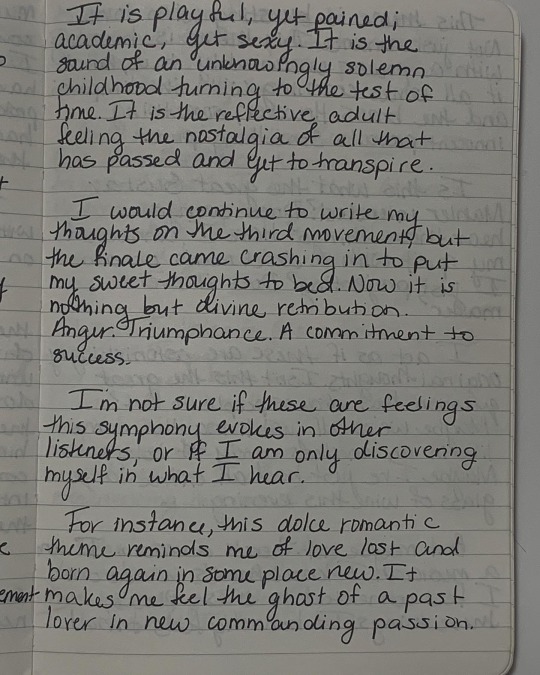 It is playful, yet pained;
academic, yet sexy. It is the
sound of an unknowingly solemn
childhood turning to the test of
time. It is the reflective adult
feeling the nostalgia of all that
has passed and yet to transpire.
I would continue to write my
thoughts on the third movement, but
the finale came crashing in to put
my sweet thoughts to bed. Now it is
nothing but divine retribution.
Anger. Triumphance. A commitment to
success.
I'm not sure if these are feelings
this symphony evokes in other
listeners, or if I am only discovering
myself in what I hear.
For instance, this dolce romantic
theme reminds me of love lost and
born again in some place new. It
makes me feel the ghost of a past
lover in new commanding passion.